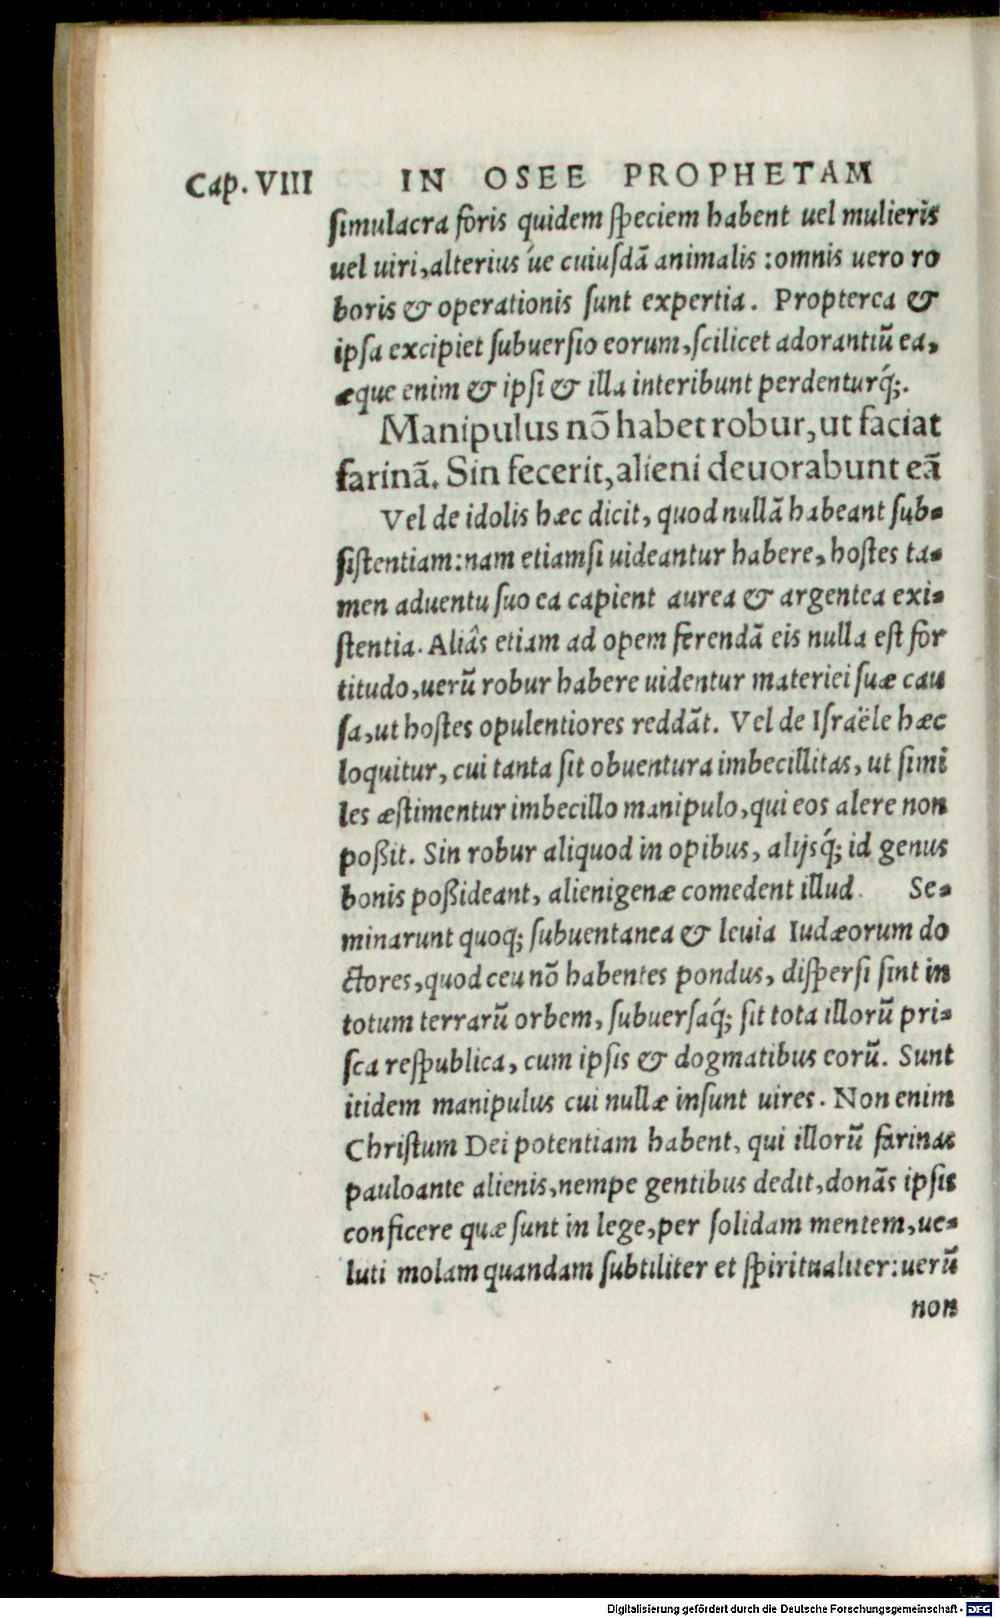 Cap. VIII IN OSEE PROPHETAM
simulacra foris quidem speciem habent uel mulieris
uel uiri, alterius úe cuiusdã animalis : omnis uero ro
boris & operationis sunt expertia. Propterea &
ipsa excipiet subuersio eorum, scilicet adorantiũ ea,
æque enim & ipsi & illa interibunt perdenturq́;.
Manipulus nõ habet robur, ut faciat
farinã. Sin fecerit, alieni deuorabunt eã
Vel de idolis hæc dicit, quod nullã habeant sub-
sistentiam: nam etiamsi uideantur habere, hostes ta-
men aduentu suo ea capient aurea & argentea exi-
stentia. Aliâs etiam ad opem ferendã eis nulla est for
titudo, uerũ robur habere uidentur materiei suæ cau
sa, ut hostes opulentiores reddãt. Vel de Israële hæc
loquitur, cui tanta sit obuentura imbecillitas, ut simi
les æstimentur imbecillo manipulo, qui eos alere non
poßit. Sin robur aliquod in opibus, alijsq́; id genus
bonis poßideant, alienigenæ comedent illud. Se-
minarunt quoq; subuentanea & leuia Iudæorum do
ctores, quod ceu nõ habentes pondus, dispersi sint in
totum terrarũ orbem, subuersaq́; sit tota illorũ pri-
sca respublica, cum ipsis & dogmatibus eorũ. Sunt
itidem manipulus cui nullæ insunt uires. Non enim
Christum Dei potentiam habent, qui illorũ farinas
pauloante alienis, nempe gentibus dedit, donãs ipsis
conficere quæ sunt in lege, per solidam mentem, ue-
luti molam quandam subtiliter et spiritualiter: uerũ
non
Digitalisierung gefördert durch die Deutsche Forschungsgemeinschaft - DFG